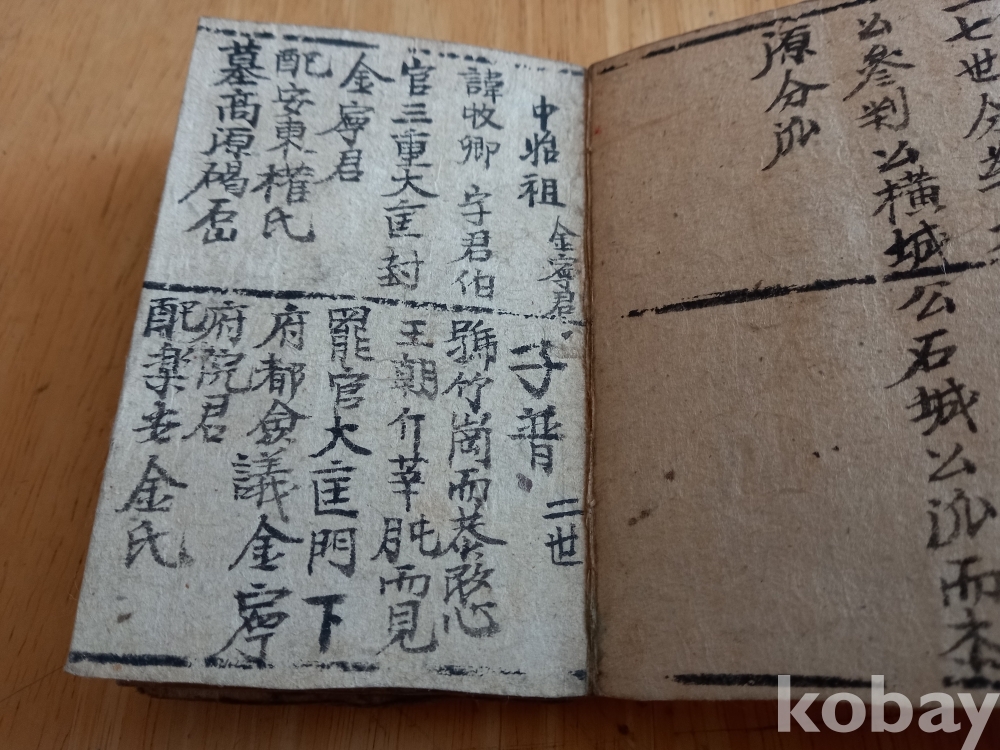 七世
公參判公橫城公石城公派而
源分派
中始祖 金寧君
諱牧卿 字君伯
官三重大匡封
金寧君
配安東權氏
墓高源碣
子普 二世
號竹崗而恭愍
王朝竹莘肫而見
罷官大匡門下
府都僉議金寧
府院君
配樂安金氏
kobay